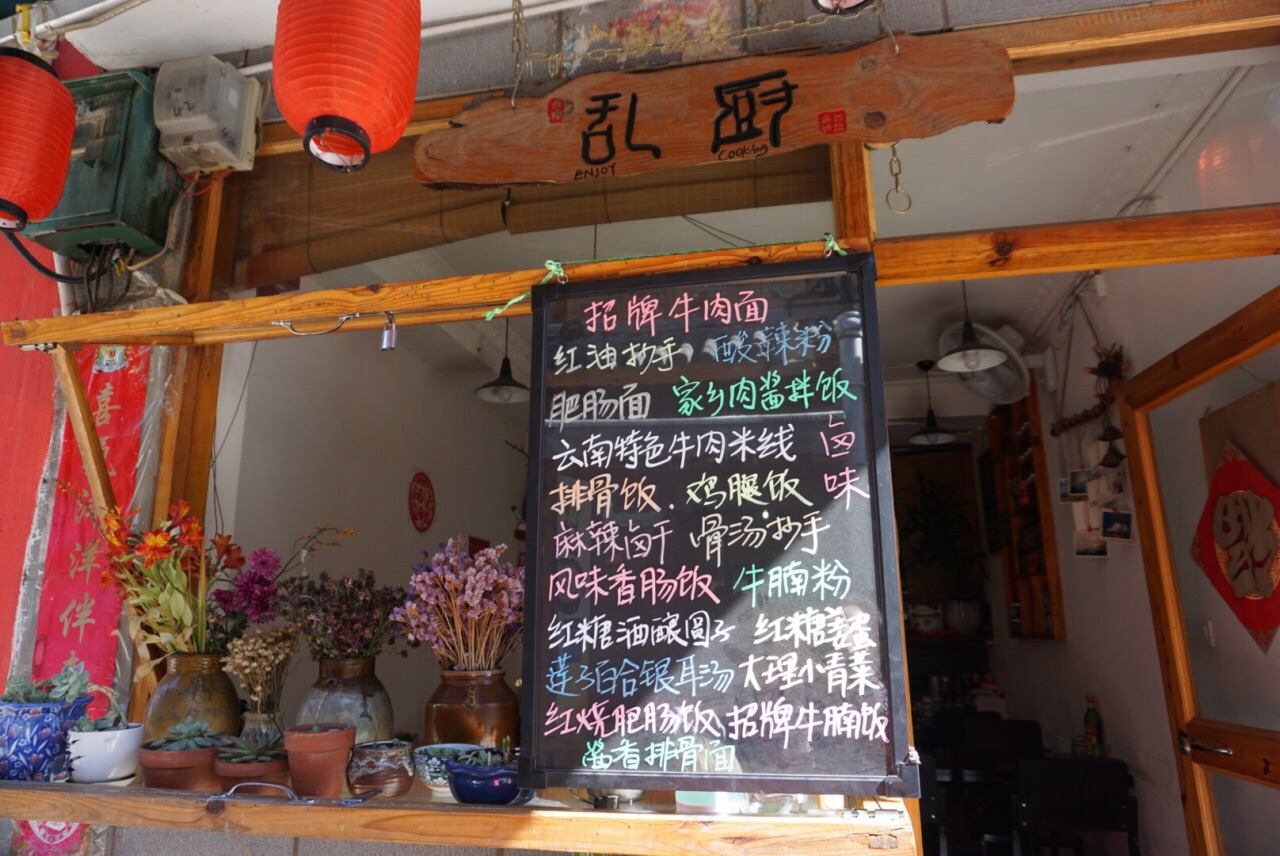 乱厨
ENJOY Cooking
招牌牛肉面
红油抄手 酸辣粉
肥肠面 家乡肉酱拌饭
云南特色牛肉米线 卤味
排骨饭. 鸡腿饭
麻辣卤干 骨汤抄手
风味香肠饭 牛腩粉
红糖酒酿圆子 红糖
莲子百合银耳汤 大理小青菜
红烧肥肠饭 招牌牛腩饭
酱香排骨面
喜气洋洋伴